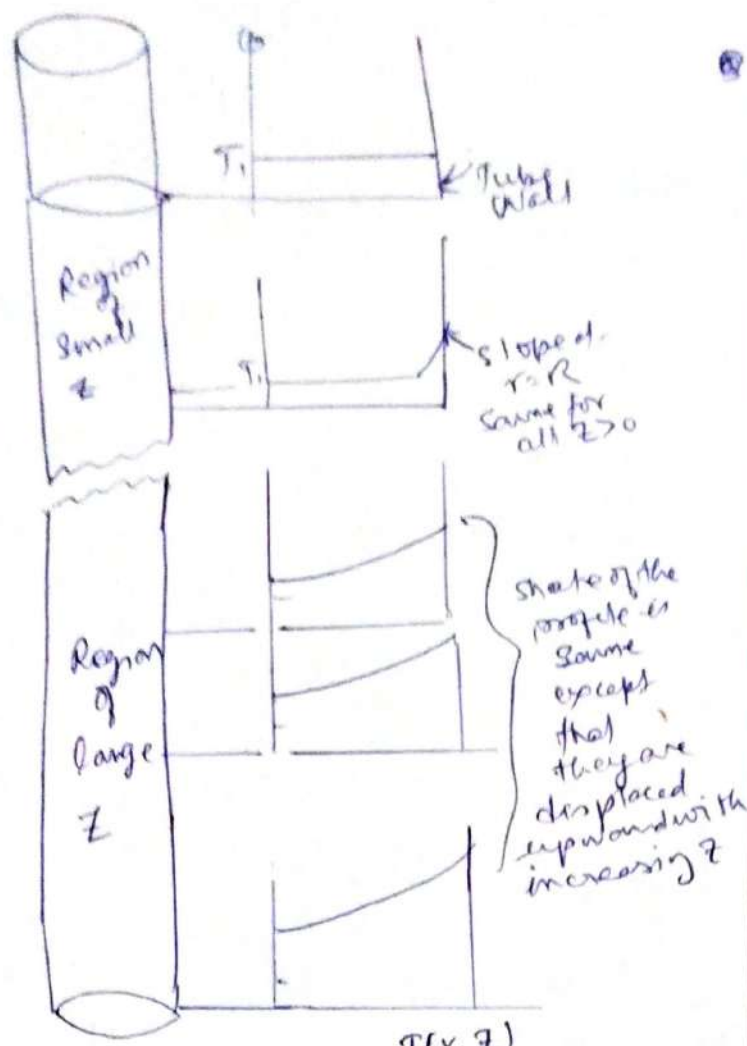 T₁
Tube
Wall
Region
of
Small
Z
T₁
slope at
r=R
same for
all Z>0
Region
of
large
Z
shape of the
profile is
same
except
that
they are
displaced
upward with
increasing Z
T(r, z)